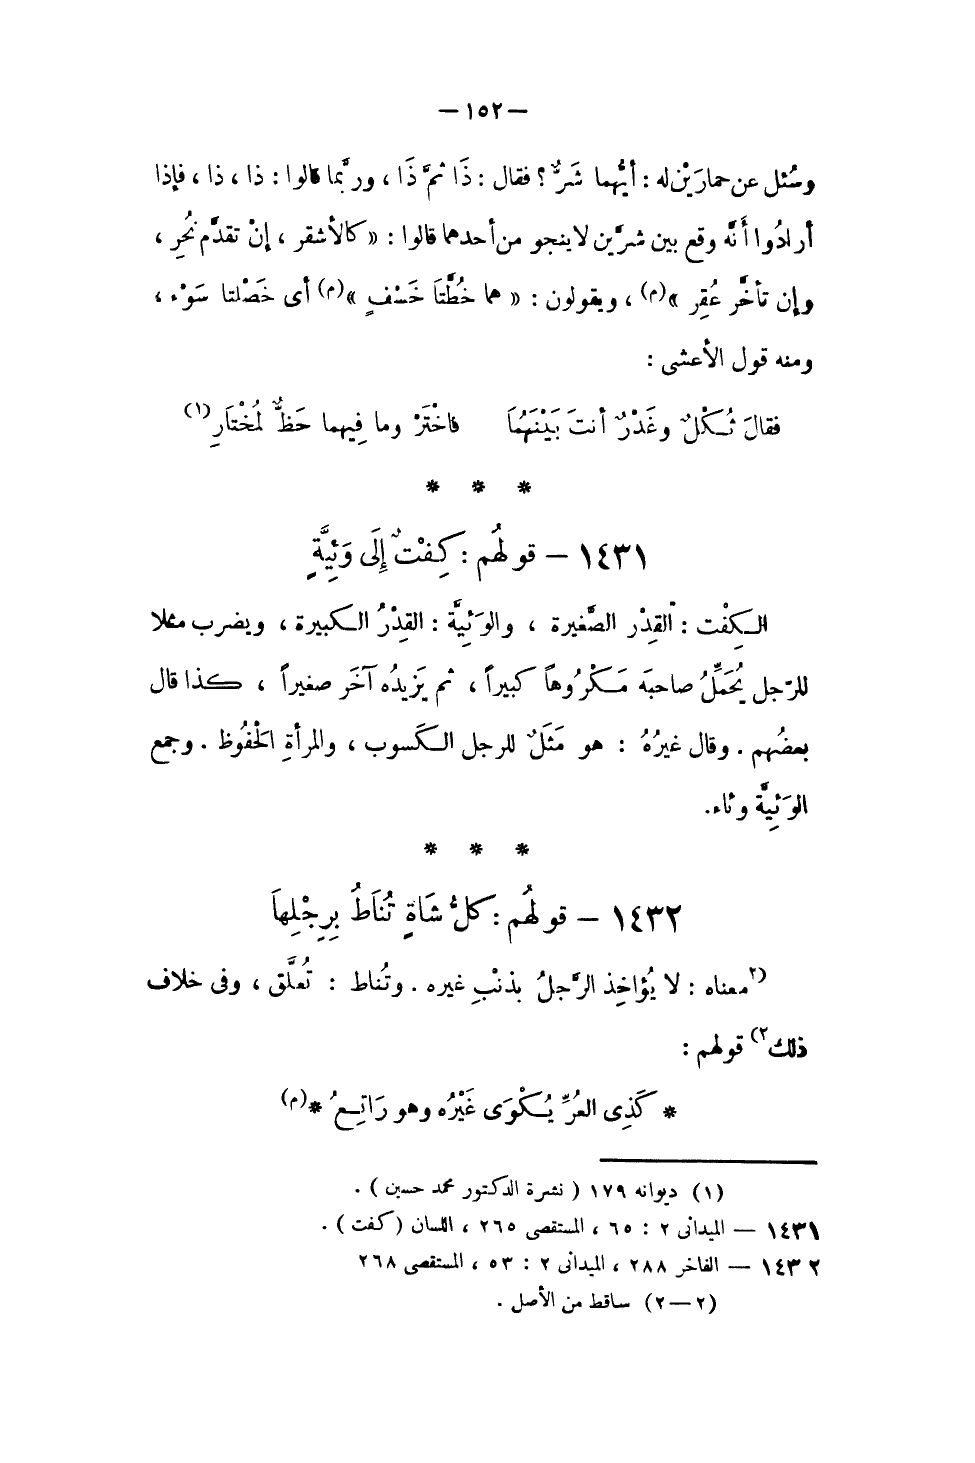 — ١٥٢ —
وسُئل عن حمارَيْن له : أيُّهما شَرٌّ ؟ فقال : ذَا ثمَّ ذَا ، وربَّما قالوا : ذا ، ذا ، فإذا
أرادُوا أَنَّه وقع بين شرَّين لاينجو من أحدهما قالوا : « كالأشقر ، إنْ تقدَّم نُحِر ،
وإن تأخَّر عُقِر »(م) ، ويقولون : « هما خُطَّتَا خَسْفٍ »(م) أى خَصْلتا سَوْء ،
ومنه قول الأعشى :
فقالَ ثُكْلٌ وغَدْرٌ أنتَ بَيْنَهُمَا فاخْتَرْ وما فِيهما حَظٌّ لمُخْتَارِ(١)
* * *
١٤٣١ — قولهُم : كِفْتٌ إِلَى وَئِيَّةٍ
الكِفْت : القِدْر الصَّغيرة ، والوَئِيَّة : القِدْرُ الكبيرة ، ويضرب مثلا
للرّجل يُحَمِّلُ صاحبَه مَكْرُوهاً كبيراً ، ثم يَزيدُه آخَر صغيراً ، كذا قال
بعضُهم . وقال غيرُهُ : هو مَثَلٌ للرجل الكَسوب ، والمرأةِ الحَفُوظ . وجمع
الوَئِيَّة وئاء.
* * *
١٤٣٢ — قولهُم : كلُّ شَاةٍ تُنَاطُ بِرِجْلِهاَ
(٢معناه : لا يُؤاخِذ الرَّجلُ بذنْبِ غيره . وتُناط : تُعلَّق ، وفى خلاف
ذلك٢) قولهم :
* كَذِى العُرِّ يُكْوَى غَيْرُه وهو رَاتِعُ *(م)
(١) ديوانه ١٧٩ ( نشرة الدكتور محمد حسين ) .
١٤٣١ — الميدانى ٢ : ٦٥ ، المستقصى ٢٦٥ ، اللسان (كفت ) .
١٤٣٢ — الفاخر ٢٨٨ ، الميدانى ٢ : ٥٣ ، المستقصى ٢٦٨
(٢—٢) ساقط من الأصل .